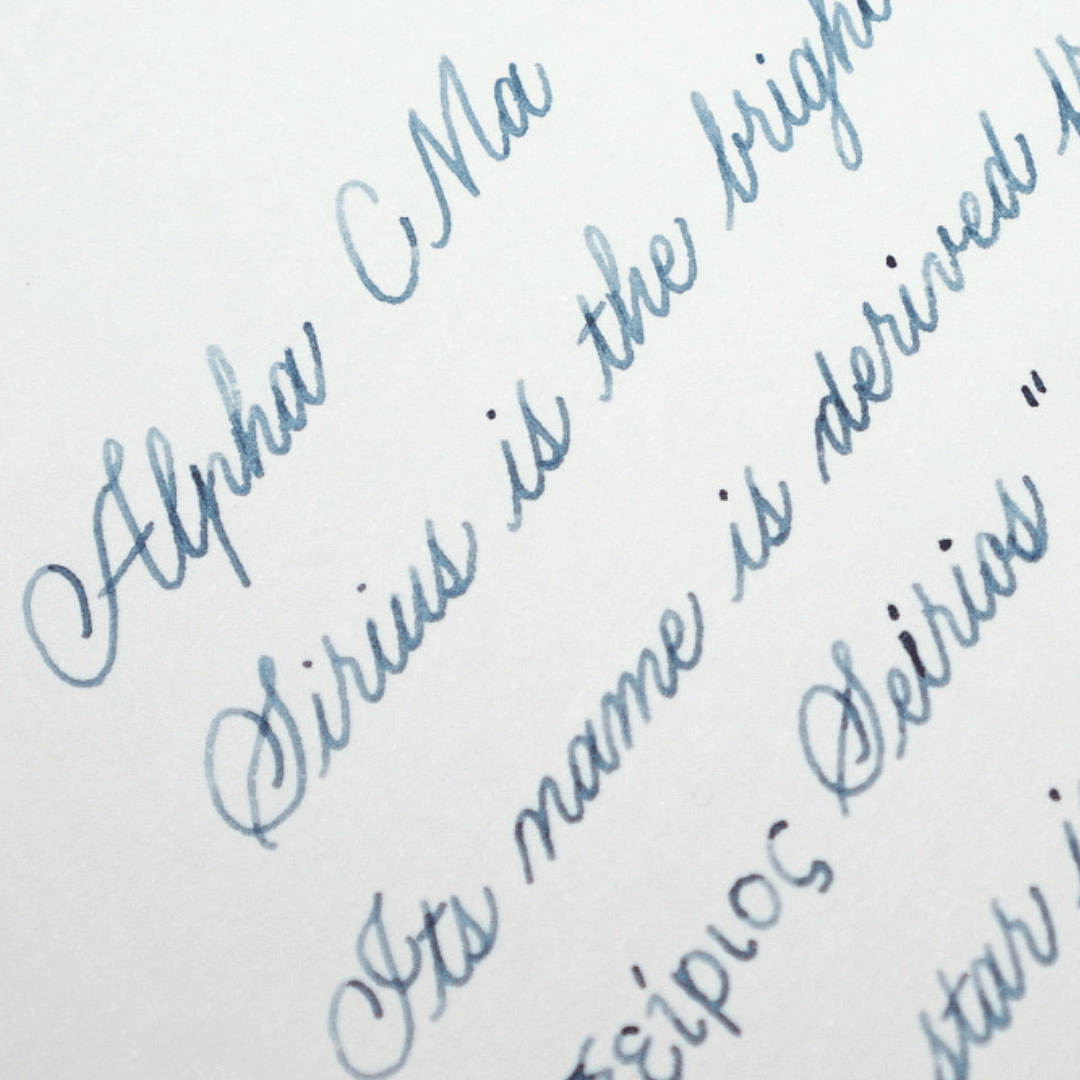 Alpha CMa
Sirius is the brigh
Its name is derived
είριος Seirios "
star